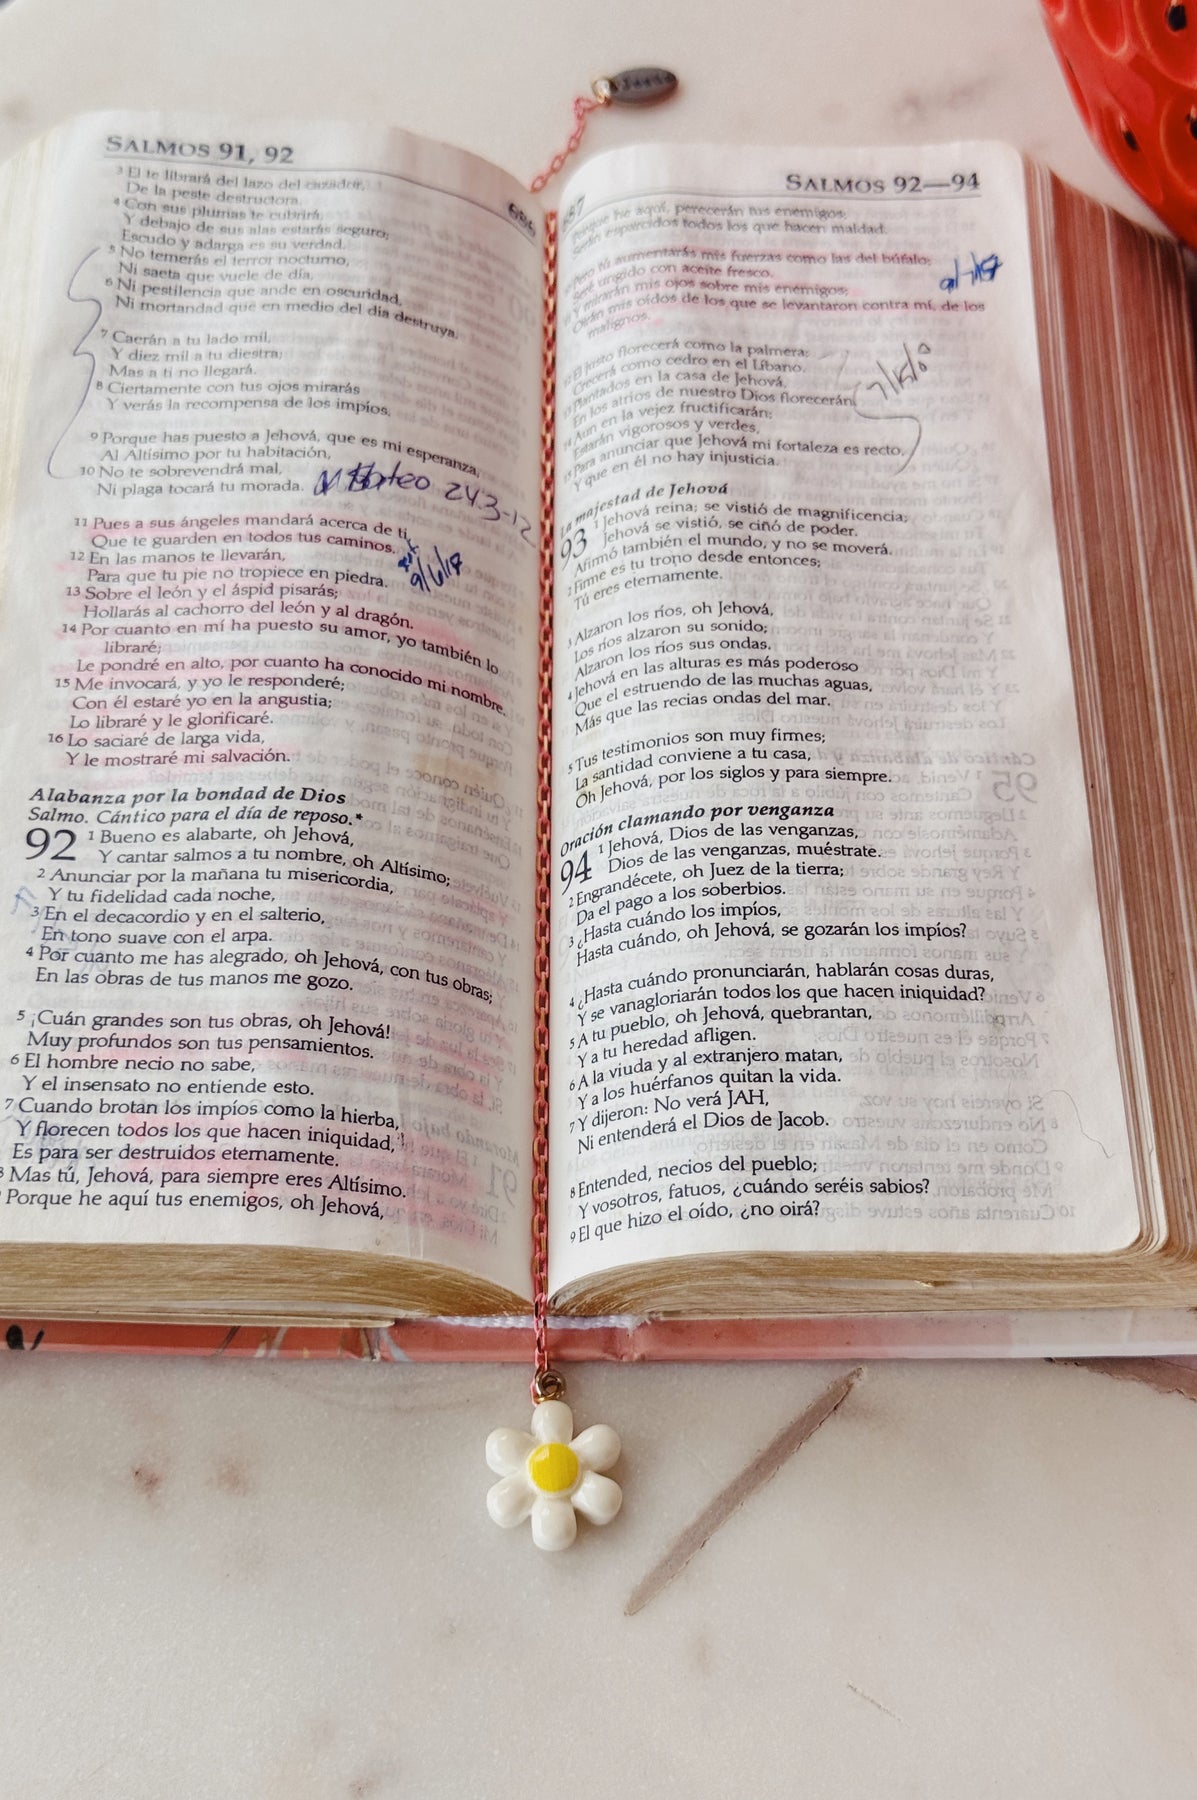 SALMOS 91, 92
686
3 El te librará del lazo del cazador,
De la peste destructora.
4 Con sus plumas te cubrirá,
Y debajo de sus alas estarás seguro;
Escudo y adarga es su verdad.
5 No temerás el terror nocturno,
Ni saeta que vuele de día,
6 Ni pestilencia que ande en oscuridad,
Ni mortandad que en medio del día destruya.
7 Caerán a tu lado mil,
Y diez mil a tu diestra;
Mas a ti no llegará.
8 Ciertamente con tus ojos mirarás
Y verás la recompensa de los impíos.
9 Porque has puesto a Jehová, que es mi esperanza,
Al Altísimo por tu habitación,
10 No te sobrevendrá mal,
Ni plaga tocará tu morada.
Mateo 24:3-12
11 Pues a sus ángeles mandará acerca de ti,
Que te guarden en todos tus caminos.
9/6/18
12 En las manos te llevarán,
Para que tu pie no tropiece en piedra.
13 Sobre el león y el áspid pisarás;
Hollarás al cachorro del león y al dragón.
14 Por cuanto en mí ha puesto su amor, yo también lo
libraré;
Le pondré en alto, por cuanto ha conocido mi nombre.
15 Me invocará, y yo le responderé;
Con él estaré yo en la angustia;
Lo libraré y le glorificaré.
16 Lo saciaré de larga vida,
Y le mostraré mi salvación.
Alabanza por la bondad de Dios
Salmo. Cántico para el día de reposo.*
92 1 Bueno es alabarte, oh Jehová,
Y cantar salmos a tu nombre, oh Altísimo;
2 Anunciar por la mañana tu misericordia,
Y tu fidelidad cada noche,
3 En el decacordio y en el salterio,
En tono suave con el arpa.
4 Por cuanto me has alegrado, oh Jehová, con tus obras;
En las obras de tus manos me gozo.
5 ¡Cuán grandes son tus obras, oh Jehová!
Muy profundos son tus pensamientos.
6 El hombre necio no sabe,
Y el insensato no entiende esto.
7 Cuando brotan los impíos como la hierba,
Y florecen todos los que hacen iniquidad,
Es para ser destruidos eternamente.
8 Mas tú, Jehová, para siempre eres Altísimo.
Porque he aquí tus enemigos, oh Jehová,
SALMOS 92—94
687
Porque he aquí, perecerán tus enemigos;
Serán esparcidos todos los que hacen maldad.
Pero tú aumentarás mis fuerzas como las del búfalo;
Seré ungido con aceite fresco.
Y mirarán mis ojos sobre mis enemigos;
Oirán mis oídos de los que se levantaron contra mí, de los
malignos.
12 El justo florecerá como la palmera;
Crecerá como cedro en el Líbano.
13 Plantados en la casa de Jehová,
En los atrios de nuestro Dios florecerán.
14 Aun en la vejez fructificarán;
Estarán vigorosos y verdes,
15 Para anunciar que Jehová mi fortaleza es recto,
Y que en él no hay injusticia.
La majestad de Jehová
93 1 Jehová reina; se vistió de magnificencia;
Jehová se vistió, se ciñó de poder.
Afirmó también el mundo, y no se moverá.
2 Firme es tu trono desde entonces;
Tú eres eternamente.
3 Alzaron los ríos, oh Jehová,
Los ríos alzaron su sonido;
Alzaron los ríos sus ondas.
4 Jehová en las alturas es más poderoso
Que el estruendo de las muchas aguas,
Más que las recias ondas del mar.
5 Tus testimonios son muy firmes;
La santidad conviene a tu casa,
Oh Jehová, por los siglos y para siempre.
Oración clamando por venganza
94 1 Jehová, Dios de las venganzas,
Dios de las venganzas, muéstrate.
2 Engrandécete, oh Juez de la tierra;
Da el pago a los soberbios.
3 ¿Hasta cuándo los impíos,
Hasta cuándo, oh Jehová, se gozarán los impíos?
4 ¿Hasta cuándo pronunciarán, hablarán cosas duras,
Y se vanagloriarán todos los que hacen iniquidad?
5 A tu pueblo, oh Jehová, quebrantan,
Y a tu heredad afligen.
6 A la viuda y al extranjero matan,
Y a los huérfanos quitan la vida.
7 Y dijeron: No verá JAH,
Ni entenderá el Dios de Jacob.
8 Entended, necios del pueblo;
Y vosotros, fatuos, ¿cuándo seréis sabios?
9 El que hizo el oído, ¿no oirá?